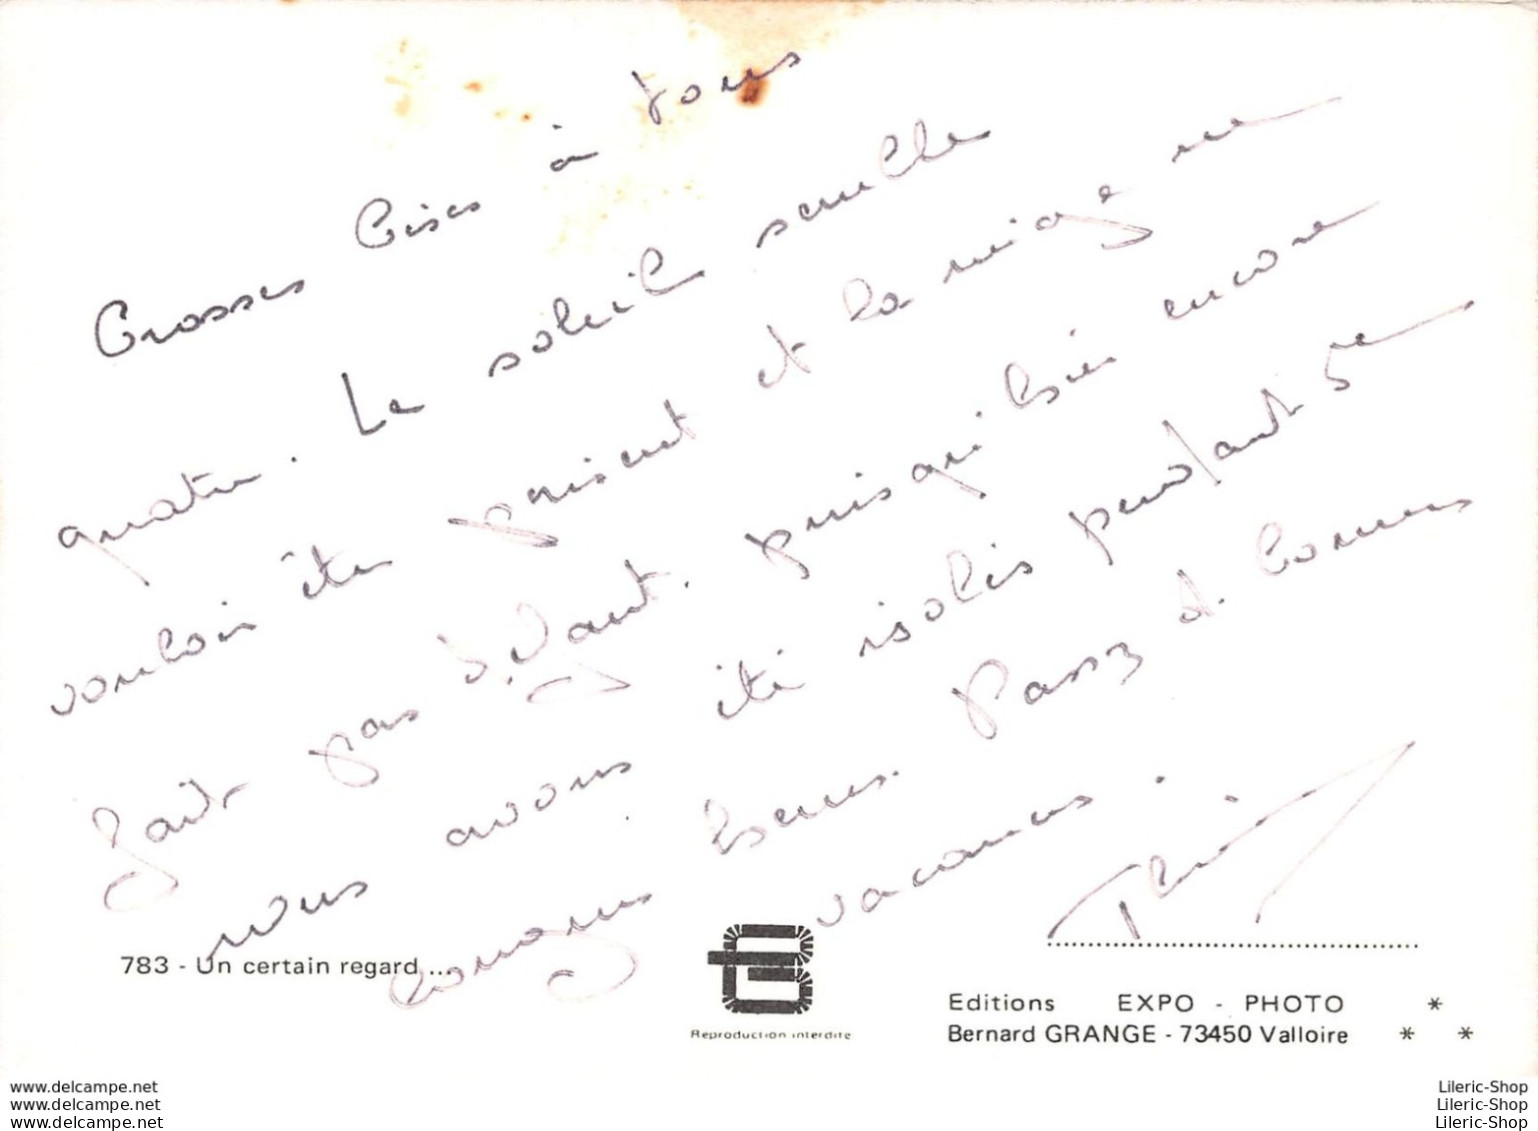 Grosses bises à tous
quatre. Le soleil semble
vouloir être présent et la neige ne
fait pas défaut. puisqu'hier encore
nous avons été isolés pendant 5
longues heures. Passez de bonnes
vacances.
783 - Un certain regard ...
Reproduction interdite
Editions EXPO - PHOTO *
Bernard GRANGE - 73450 Valloire * *
www.delcampe.net
www.delcampe.net
www.delcampe.net
Lileric-Shop
Lileric-Shop
Lileric-Shop